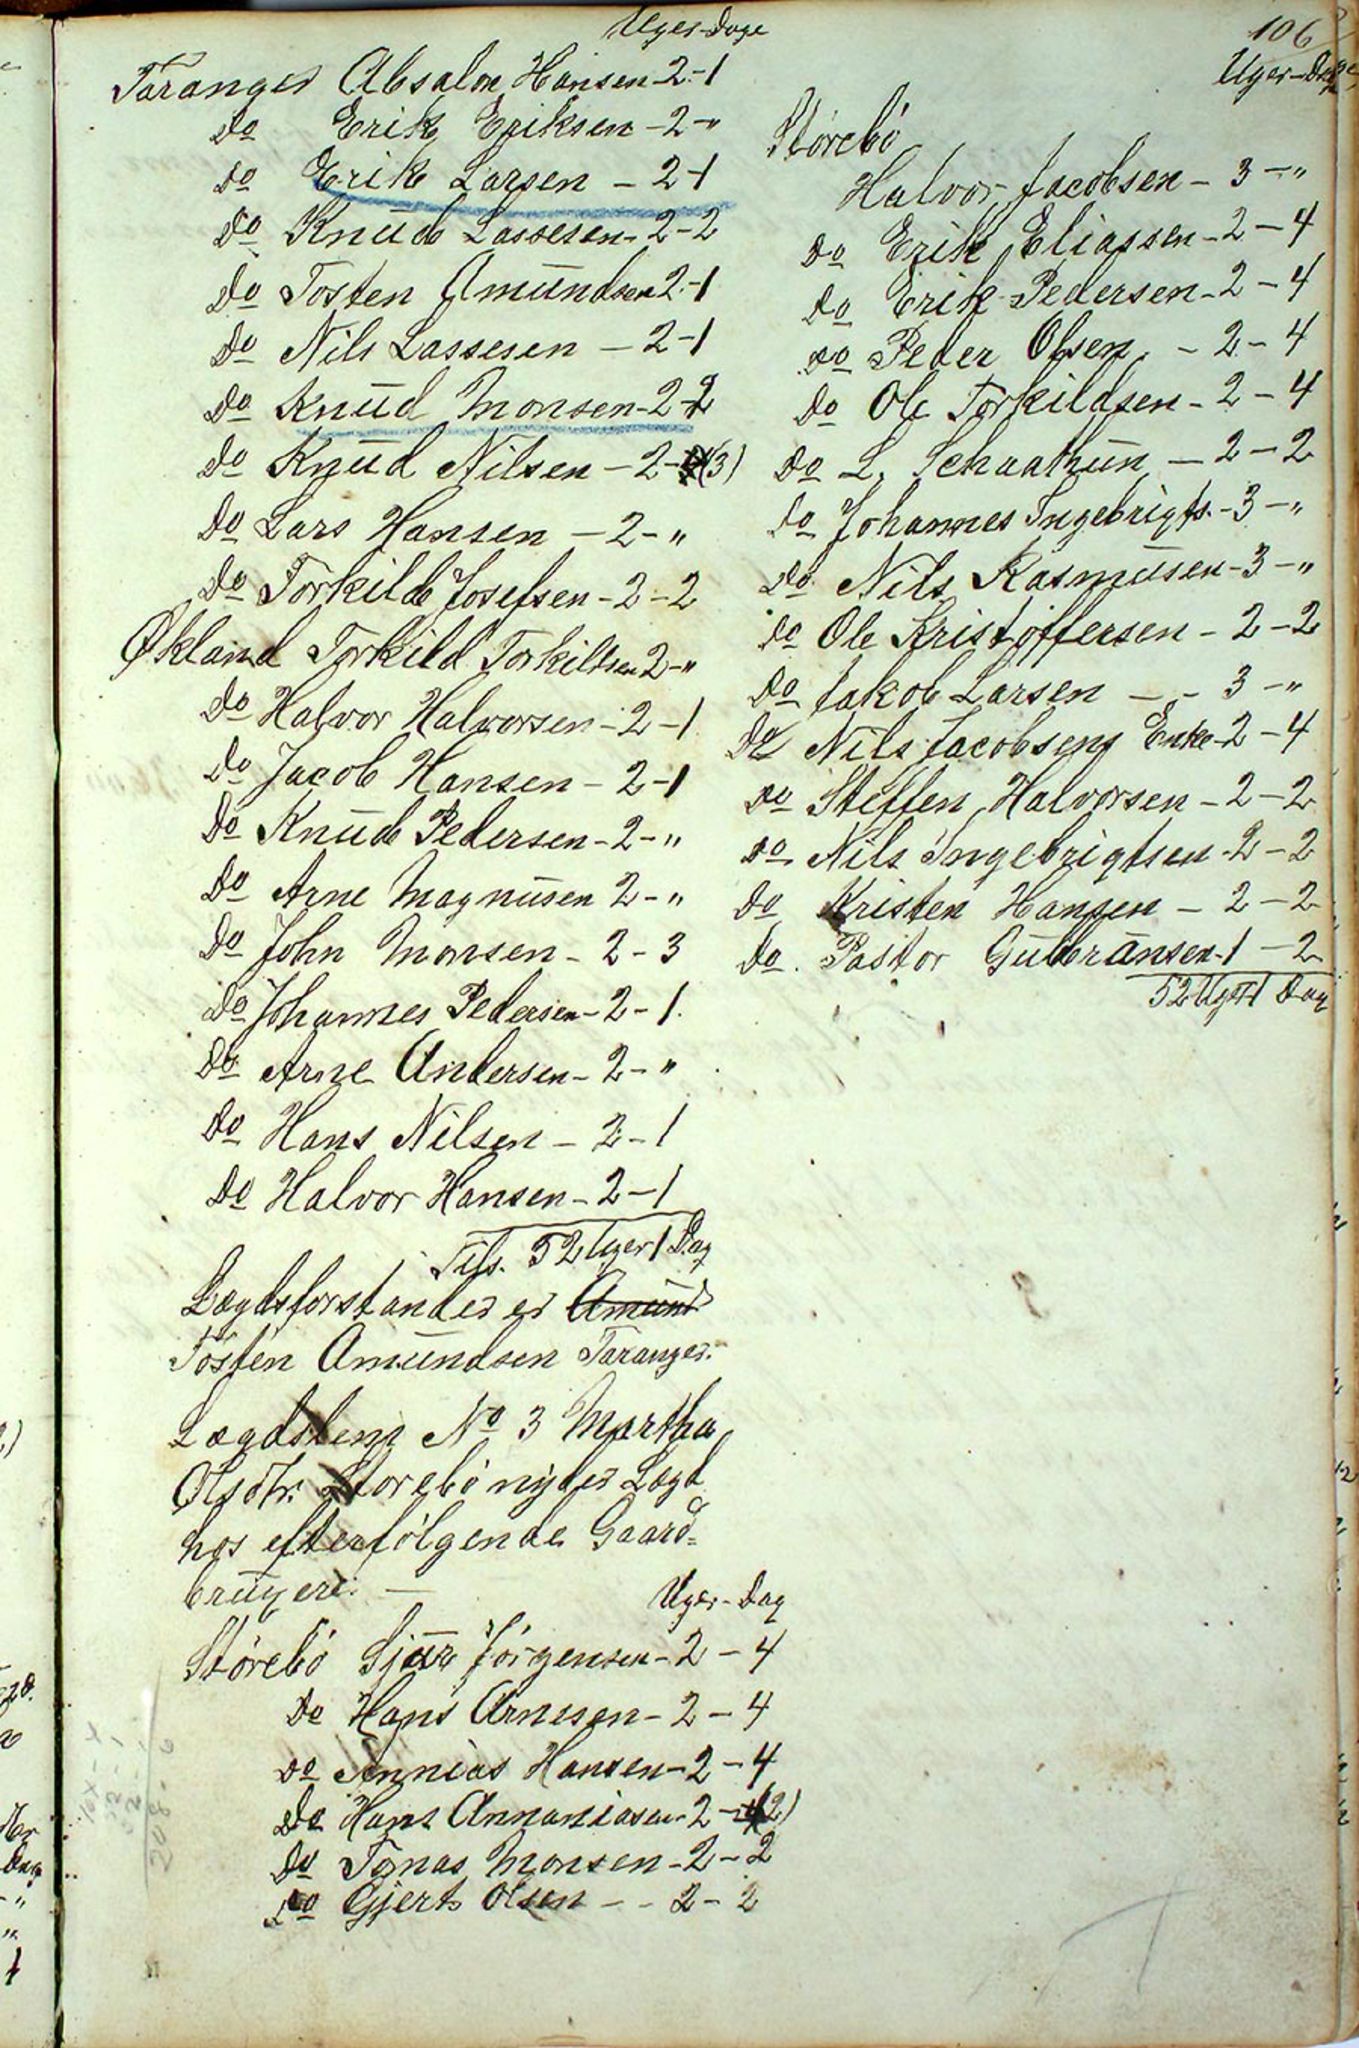 106
Uger-Dage
Taranger Absalon Hansen-2-1
Do Erik Eriksen-2-"
Do Erik Larsen-2-1
Do Knud Lassesen-2-2
Do Tosten Amundsen 2-1
Do Nils Lassesen-2-1
Do Knud Monsen-2-2
Do Knud Nilsen-2-(3)
Do Lars Hansen-2-"
Do Torkild Josefsen-2-2
Økland Torkild Torkildsen 2-"
Do Halvor Halvorsen-2-1
Do Jacob Hansen-2-1
Do Knud Pedersen-2-"
Do Arne Magnusen 2-"
Do John Monsen-2-3
Do Johannes Pedersen-2-1.
Do Arne Andersen-2-"
Do Hans Nilsen-2-1
Do Halvor Hansen-2-1
Tils. 52 Uger 1 Dag
Lægdsforstander er Amund
Tosten Amundsen Taranger.
Lægdslem No 3 Martha
Olsdtr. Storebö nyder Lægd
hos efterfölgende Gaard=
brugere.
Uger-Dag
Störebö Sjur Jörgensen-2-4
Do Hans Arnesen-2-4
Do Annias Hansen-2-4
Do Hans Annaniasen-2-4(2)
Do Tomas Monsen-2-2
Do Gjert Olsen--2-2
Uger-Dage
Störebö
Halvor Jacobsen-3-"
Do Erik Eliassen-2-4
Do Erik Pedersen-2-4
Do Peder Olsen-2-4
Do Ole Torkildsen-2-4
Do L. Schaathun-2-2
Do Johannes Ingebrigts.-3-"
Do Nils Rasmusen-3-"
Do Ole Kristoffersen-2-2
Do Jakob Larsen--3-"
Do Nils Jacobsens Enke-2-4
Do Steffen Halvorsen-2-2
Do Nils Ingebrigtsen-2-2
Do Kristen Hansen-2-2
Do. Pastor Gulbransen-1-2
52 Uger 1 Dag